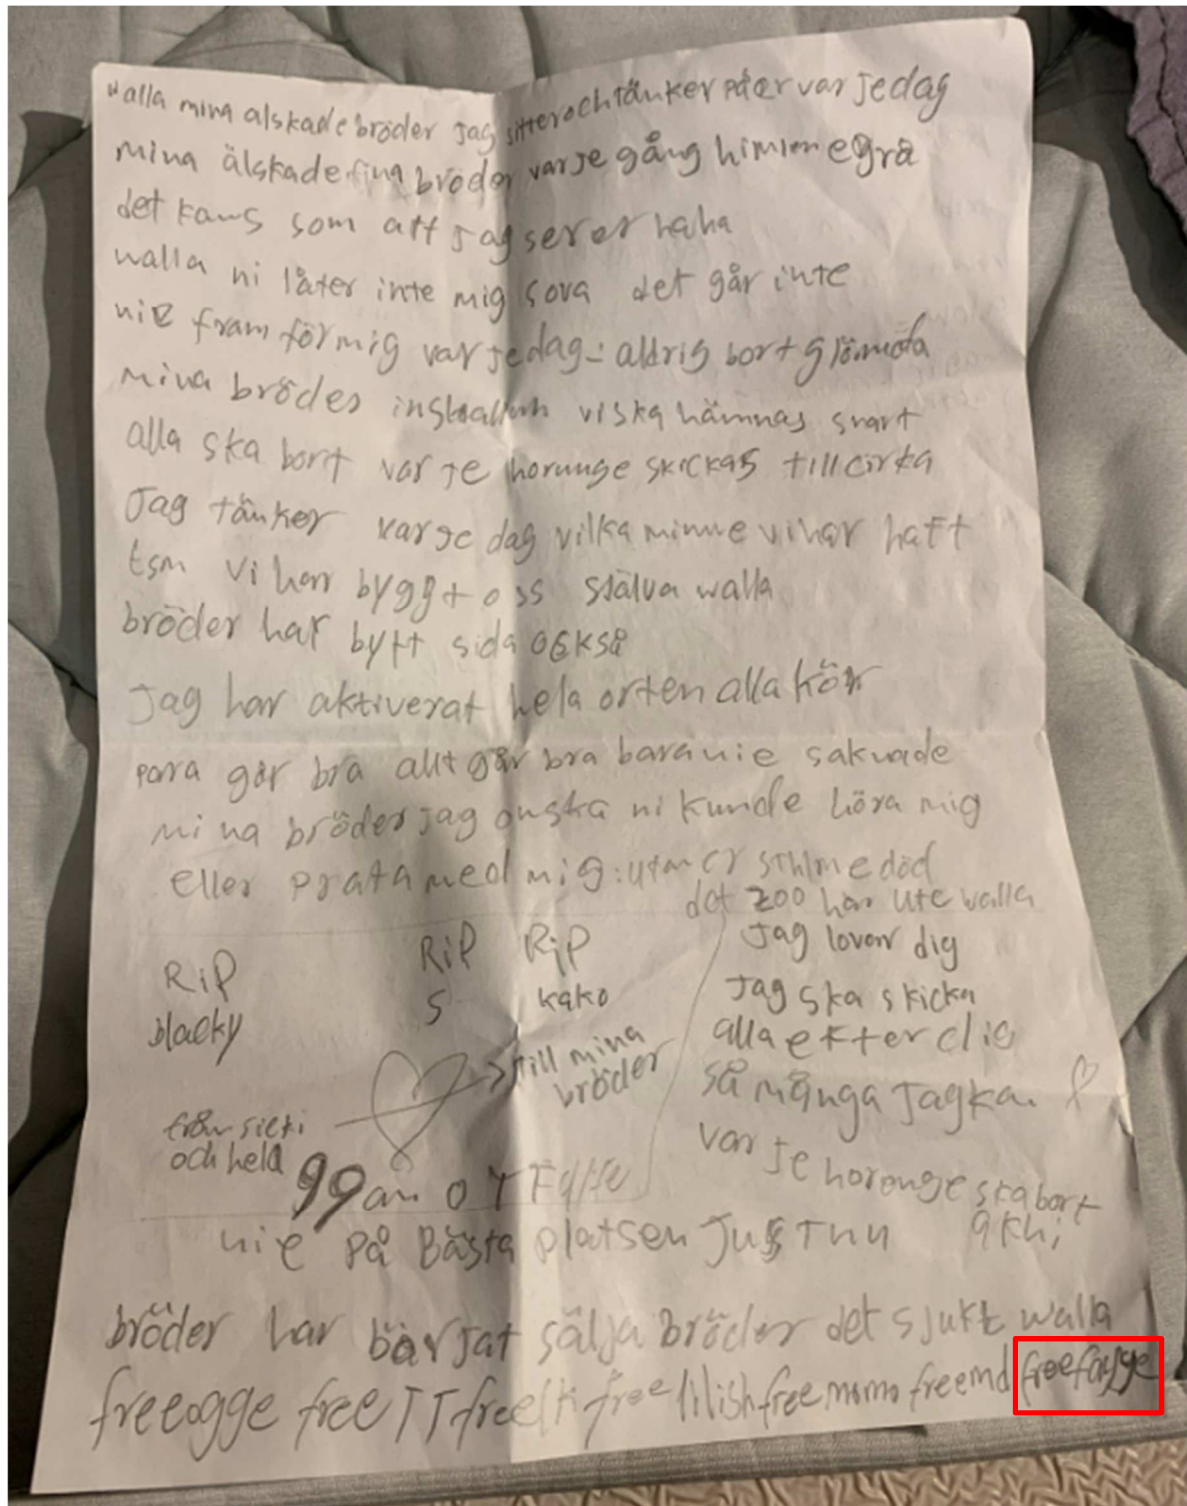 walla mina älskade bröder jag sitter och tänker på er var je dag
mina älskade fina bröder var je gång himlen e grå
det kans som att jag ser er haha
walla ni låter inte mig sova det går inte
ni e fram för mig var je dag - aldrig bort glömda
mina bröder inshallah vi ska hämnas snart
alla ska bort var je horunge skickas till cirka
Jag tänker var je dag vilka minne vi har haft
tsm vi har byggt oss själva walla
bröder har bytt sida också
Jag har aktiverat hela orten alla kör
para går bra allt går bra bara ni e saknade
mina bröder jag önska ni kunde höra mig
eller prata med mig: utan er sthlm e död
det zoo här ute walla
RiP
blacky
RiP
S
RiP
kako
till mina
bröder
från
och hela
99an
Jag lovar dig
Jag ska skicka
alla efter dig
så många jag kan
var je horunge ska bort
akhi
ni e på Bästa platsen Just nu
bröder har börjat sälja bröder det sjukt walla
freeogge free TT free free lilish free momo freemd